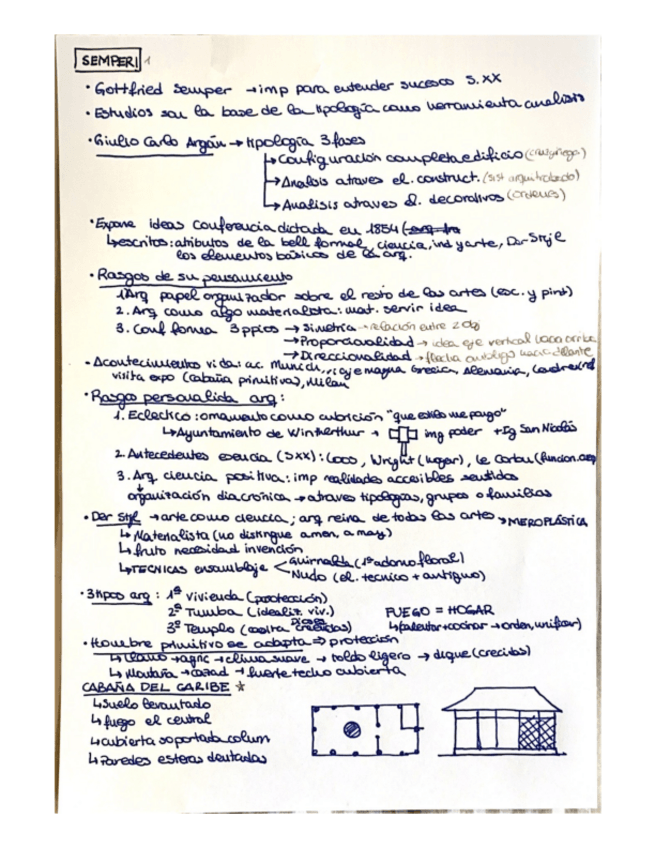 SEMPER 1
· Gottfried Semper → imp para entender sucesos S.XX
· Estudios son la base de la tipología como herramienta analisis
· Giulio Carlo Argán → tipología 3 fases
↳ Configuracion completa edificio (cruz griega)
↳ Analisis atraves el. construct. (sist arquitrabado)
↳ Analisis atraves el. decorativos (ordenes)
· Expone ideas conferencia dictada en 1854
↳ escritos: atributos de la bell formal, ciencia, ind y arte, Der Style
los elementos básicos de la arq.
· Rasgos de su pensamiento
1. Arq papel organizador sobre el resto de las artes (esc. y pint)
2. Arq como algo materialista: mat. servir idea
3. Conf forma 3 ppios → Simetría → relación entre 2 obj
→ Proporcionalidad → idea eje vertical hacia arriba
→ Direccionalidad → flecha hacia delante
· Acontecimiento vida: ac. Munich, viaje magna Grecia, Alemania, Londres
visita expo (cabaña primitiva), Milan
· Rasgo personalida arq:
1. Eclectico: ornamento como cubrición "que estilo me pongo"
↳ Ayuntamiento de Wintherthur → img poder + Ig San Nicolás
2. Antecedentes esencia (SXX): Loos, Wright (hogar), le Corbu (funcion. arq
3. Arq ciencia positiva: imp realidades accesibles sentidos
organización diacrónica → atraves tipologías, grupos o familias
· Der Style → arte como ciencia; arq reina de todas las artes → MEROPLÁSTICA
↳ Materialista (no distingue a men, a may)
↳ fruto necesidad invención
↳ TECNICAS ensamblaje < Guirnalda (1º adorno floral)
Nudo (el. tecnico + antiguo)
· 3 tipos arq: 1ª Vivienda (protección)
2ª Tumba (idealiz. viv.) FUEGO = HOGAR
3ª Templo (casita Dioses) ↳ (calentar + cocinar → orden, unificar)
· Hombre primitivo se adapta ⇒ protección
↳ Llano → agric → clima suave → toldo ligero → dique (crecidas)
↳ Montaña → cazad → fuerte techo cubierta
CABAÑA DEL CARIBE *
↳ suelo levantado
↳ fuego el central
↳ cubierta soportada colum
↳ Paredes esteras dentadas